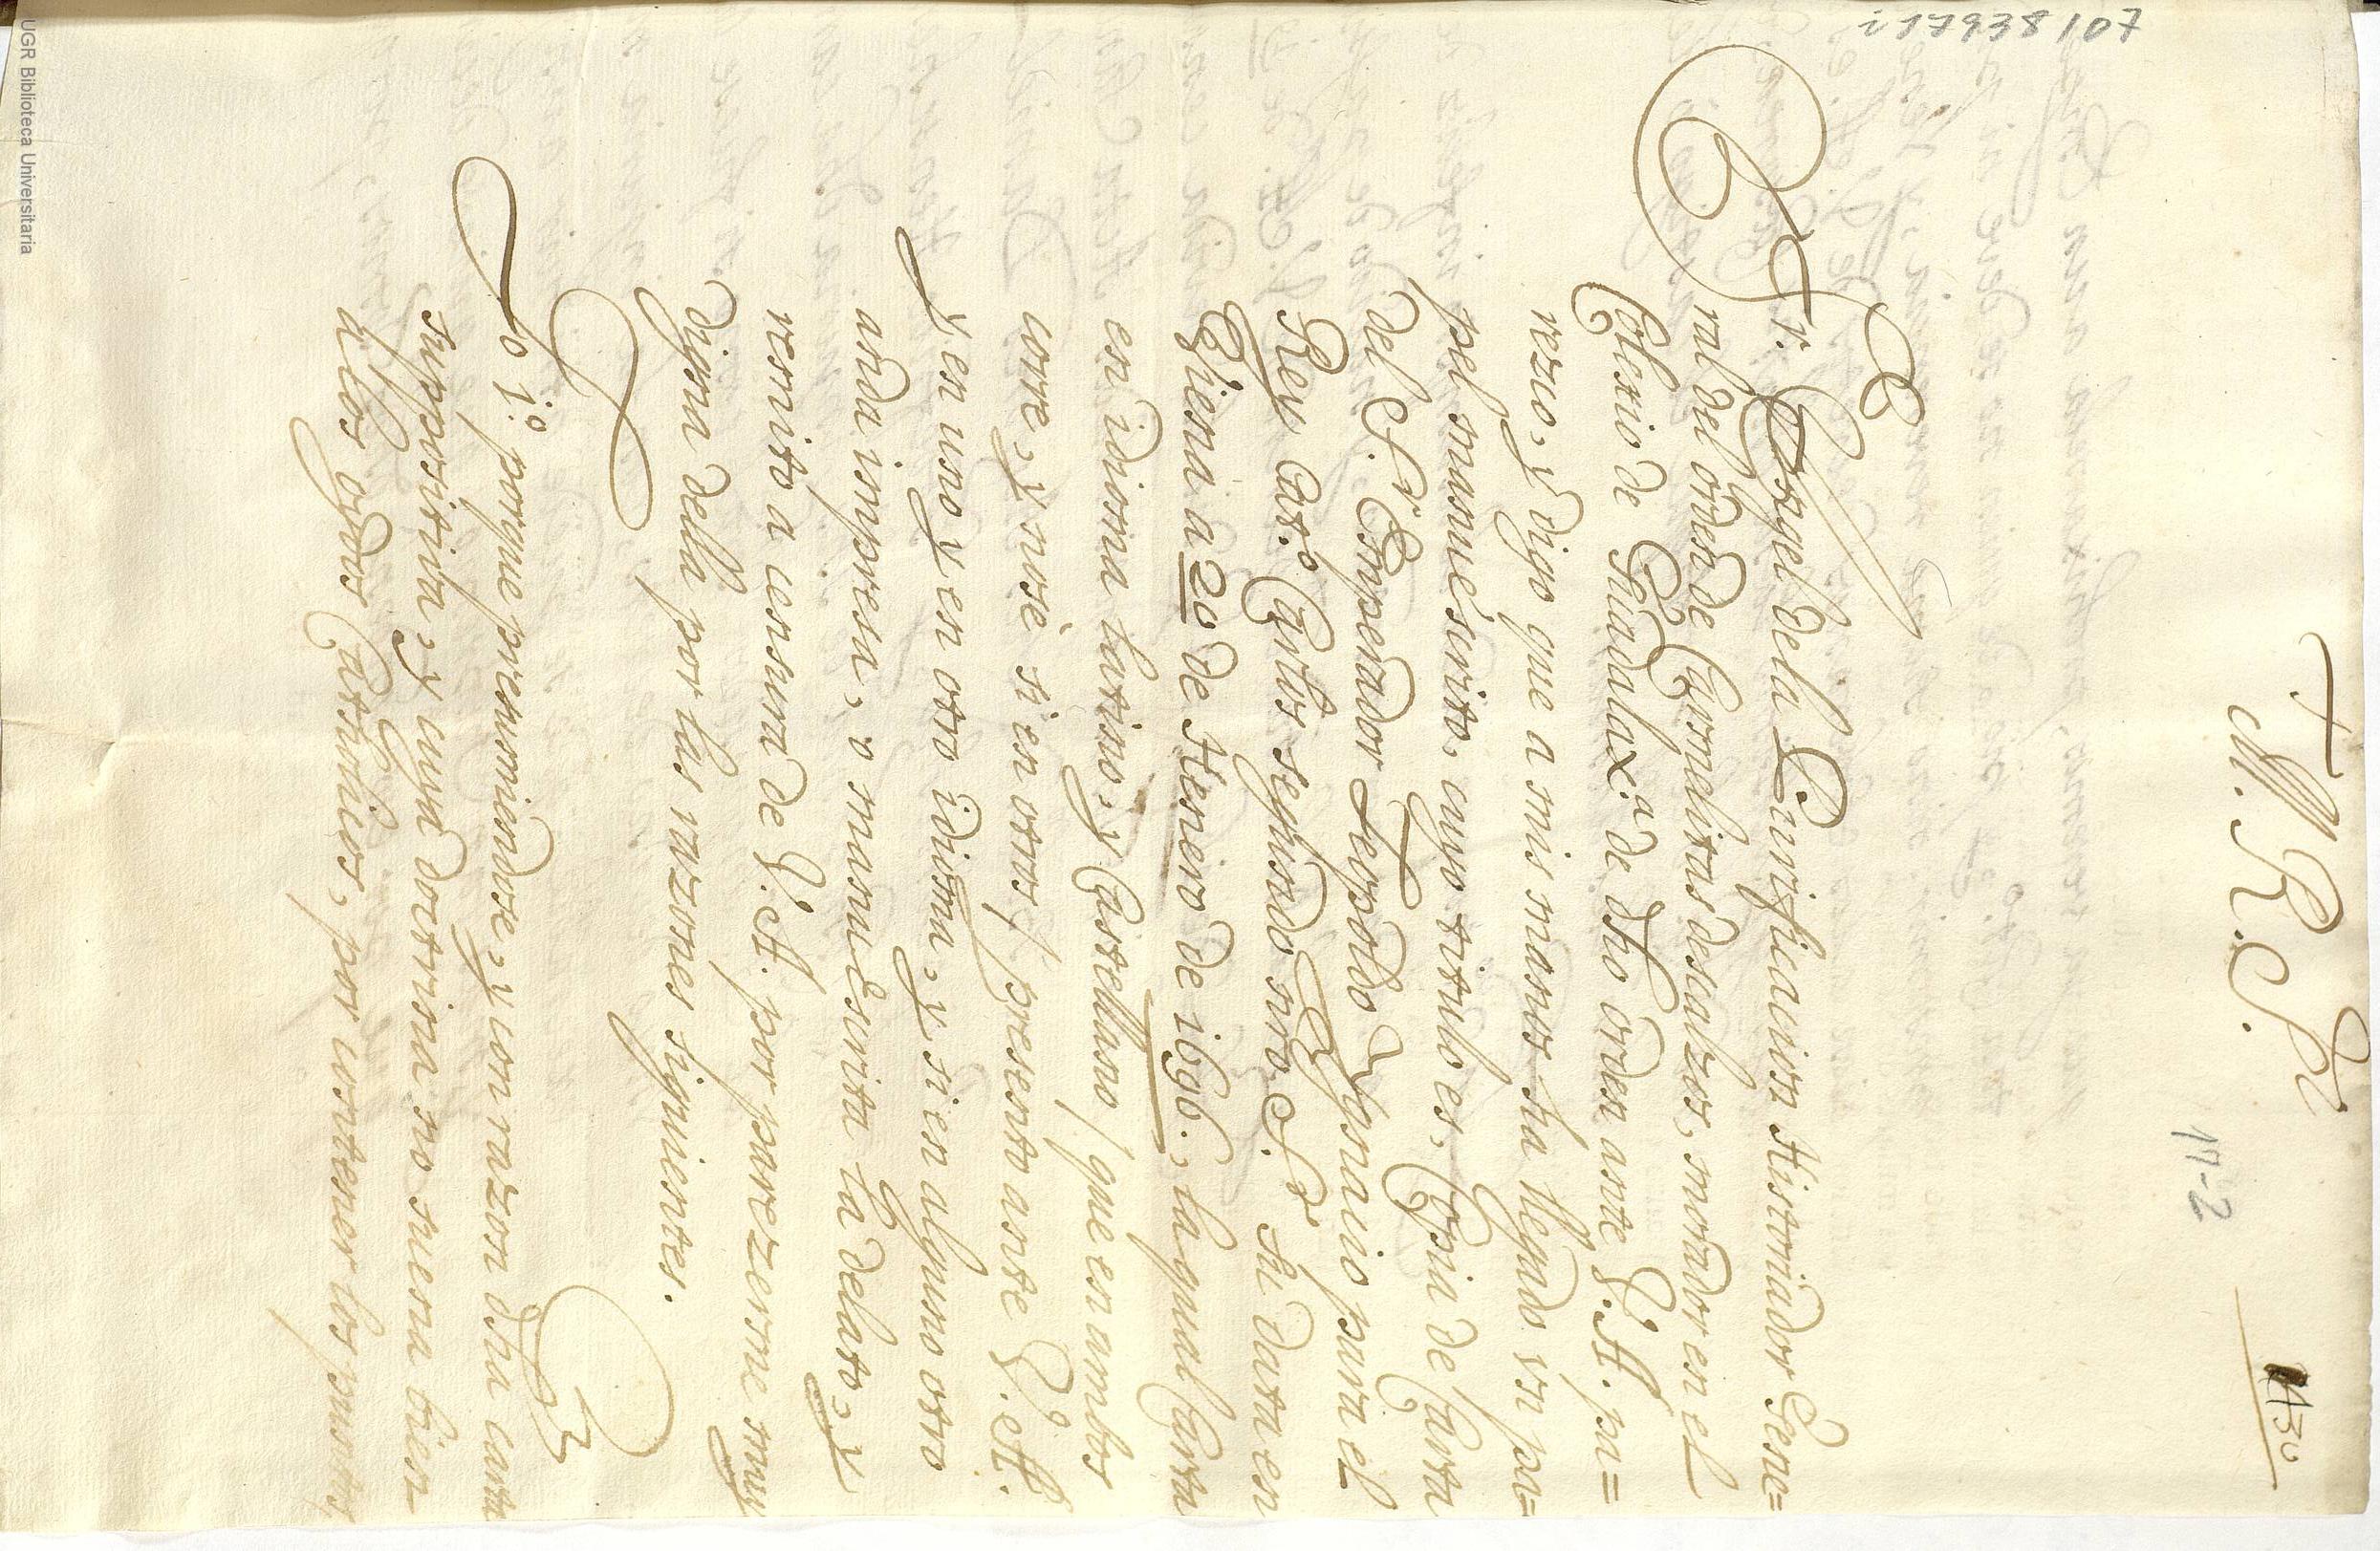 i17938107
+
M. P. S.
17-2
130
Fr. Angel dela Purificacion Historiador Gene=
ral del orden de Carmelitas descalzos, morador en el
Colexio de Guadalax.ª de dho orden ante V. A. pa=
rezco, y digo que a mis manos ha llegado vn pa=
pel manuescrito, cuyo titulo es, Copia de Carta
del S.r Emperador Leopoldo Ygnacio para el
Rey Cat.º Carlos segundo nro S.r su data en
Viena a 20 de Henero de 1696., la qual Carta
en idioma latino, y Castellano / que en ambos
corre, y nosè si en otros / presento ante V. A.
y en uno y en otro idioma, y si en alguno otro
anda impresa, o manuescrita la delato, y
remito a censura de V. A. por parezerme muy
digna della por las razones siguientes.
Lo 1.º porque presumiendose, y con razon dha carta
supposititia, y cuya doctrina no suena bien
a los oydos Catholicos, por contener los puntos
UGR Biblioteca Universitaria